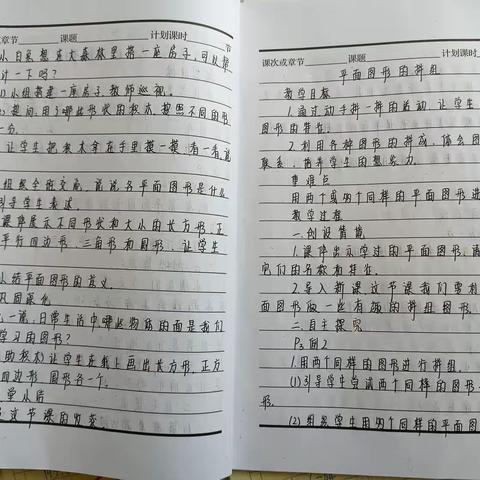 章节 课题 计划课时 节
小白兔想在大森林里搭一座房子,可以帮
计一下吗?
小组搭建一座房子,教师巡视。
提问:用了哪些形状的积木,按照不同的形
一分。
让学生把积木拿在手里摸一摸,看一看,说
组织全班交流,说说各平面图形是什么
引导学生表述
课件展示不同形状和大小的长方形、正
平行四边形、三角形和圆形,让学生
小结平面图形的含义。
巩固深化
一说,日常生活中哪些物体的面是我们
学习的图形?
助积木,让学生在纸上画出长方形、正方
四边形、圆形各一个。
堂小结
这节课的收获
课次或章节 课题 计划课时
平面图形的拼组
教学目标
1.通过动手拼一拼的活动,让学生
图形的特征。
2.利用各种图形的拼成,体会图
联系,培养学生的想象力。
重难点
用两个或多个同样的平面图形进
教学过程
一、创设情境
1.课件出示学过的平面图形,请
它们的名称和特征。
2.导入新课:这节课我们要利
面图形做一些有趣的拼组图形。
二、自主探究
P3例2
1.用两个同样的图形进行拼组。
(1)引导学生尝试两个同样的图形
形。
(2)组织学生用两个同样的平面图